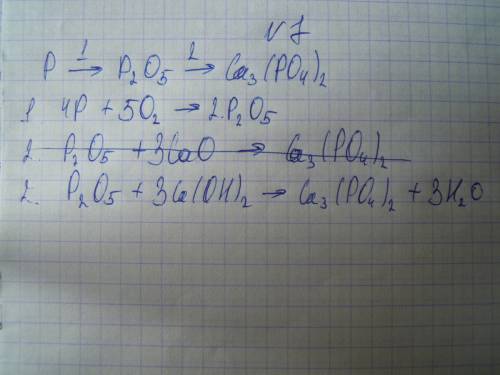 № 1
P 1→ P₂O₅ 2→ Ca₃(PO₄)₂
1. 4P + 5O₂ → 2P₂O₅
2. P₂O₅ + 3CaO → Ca₃(PO₄)₂
2. P₂O₅ + 3Ca(OH)₂ → Ca₃(PO₄)₂ + 3H₂O